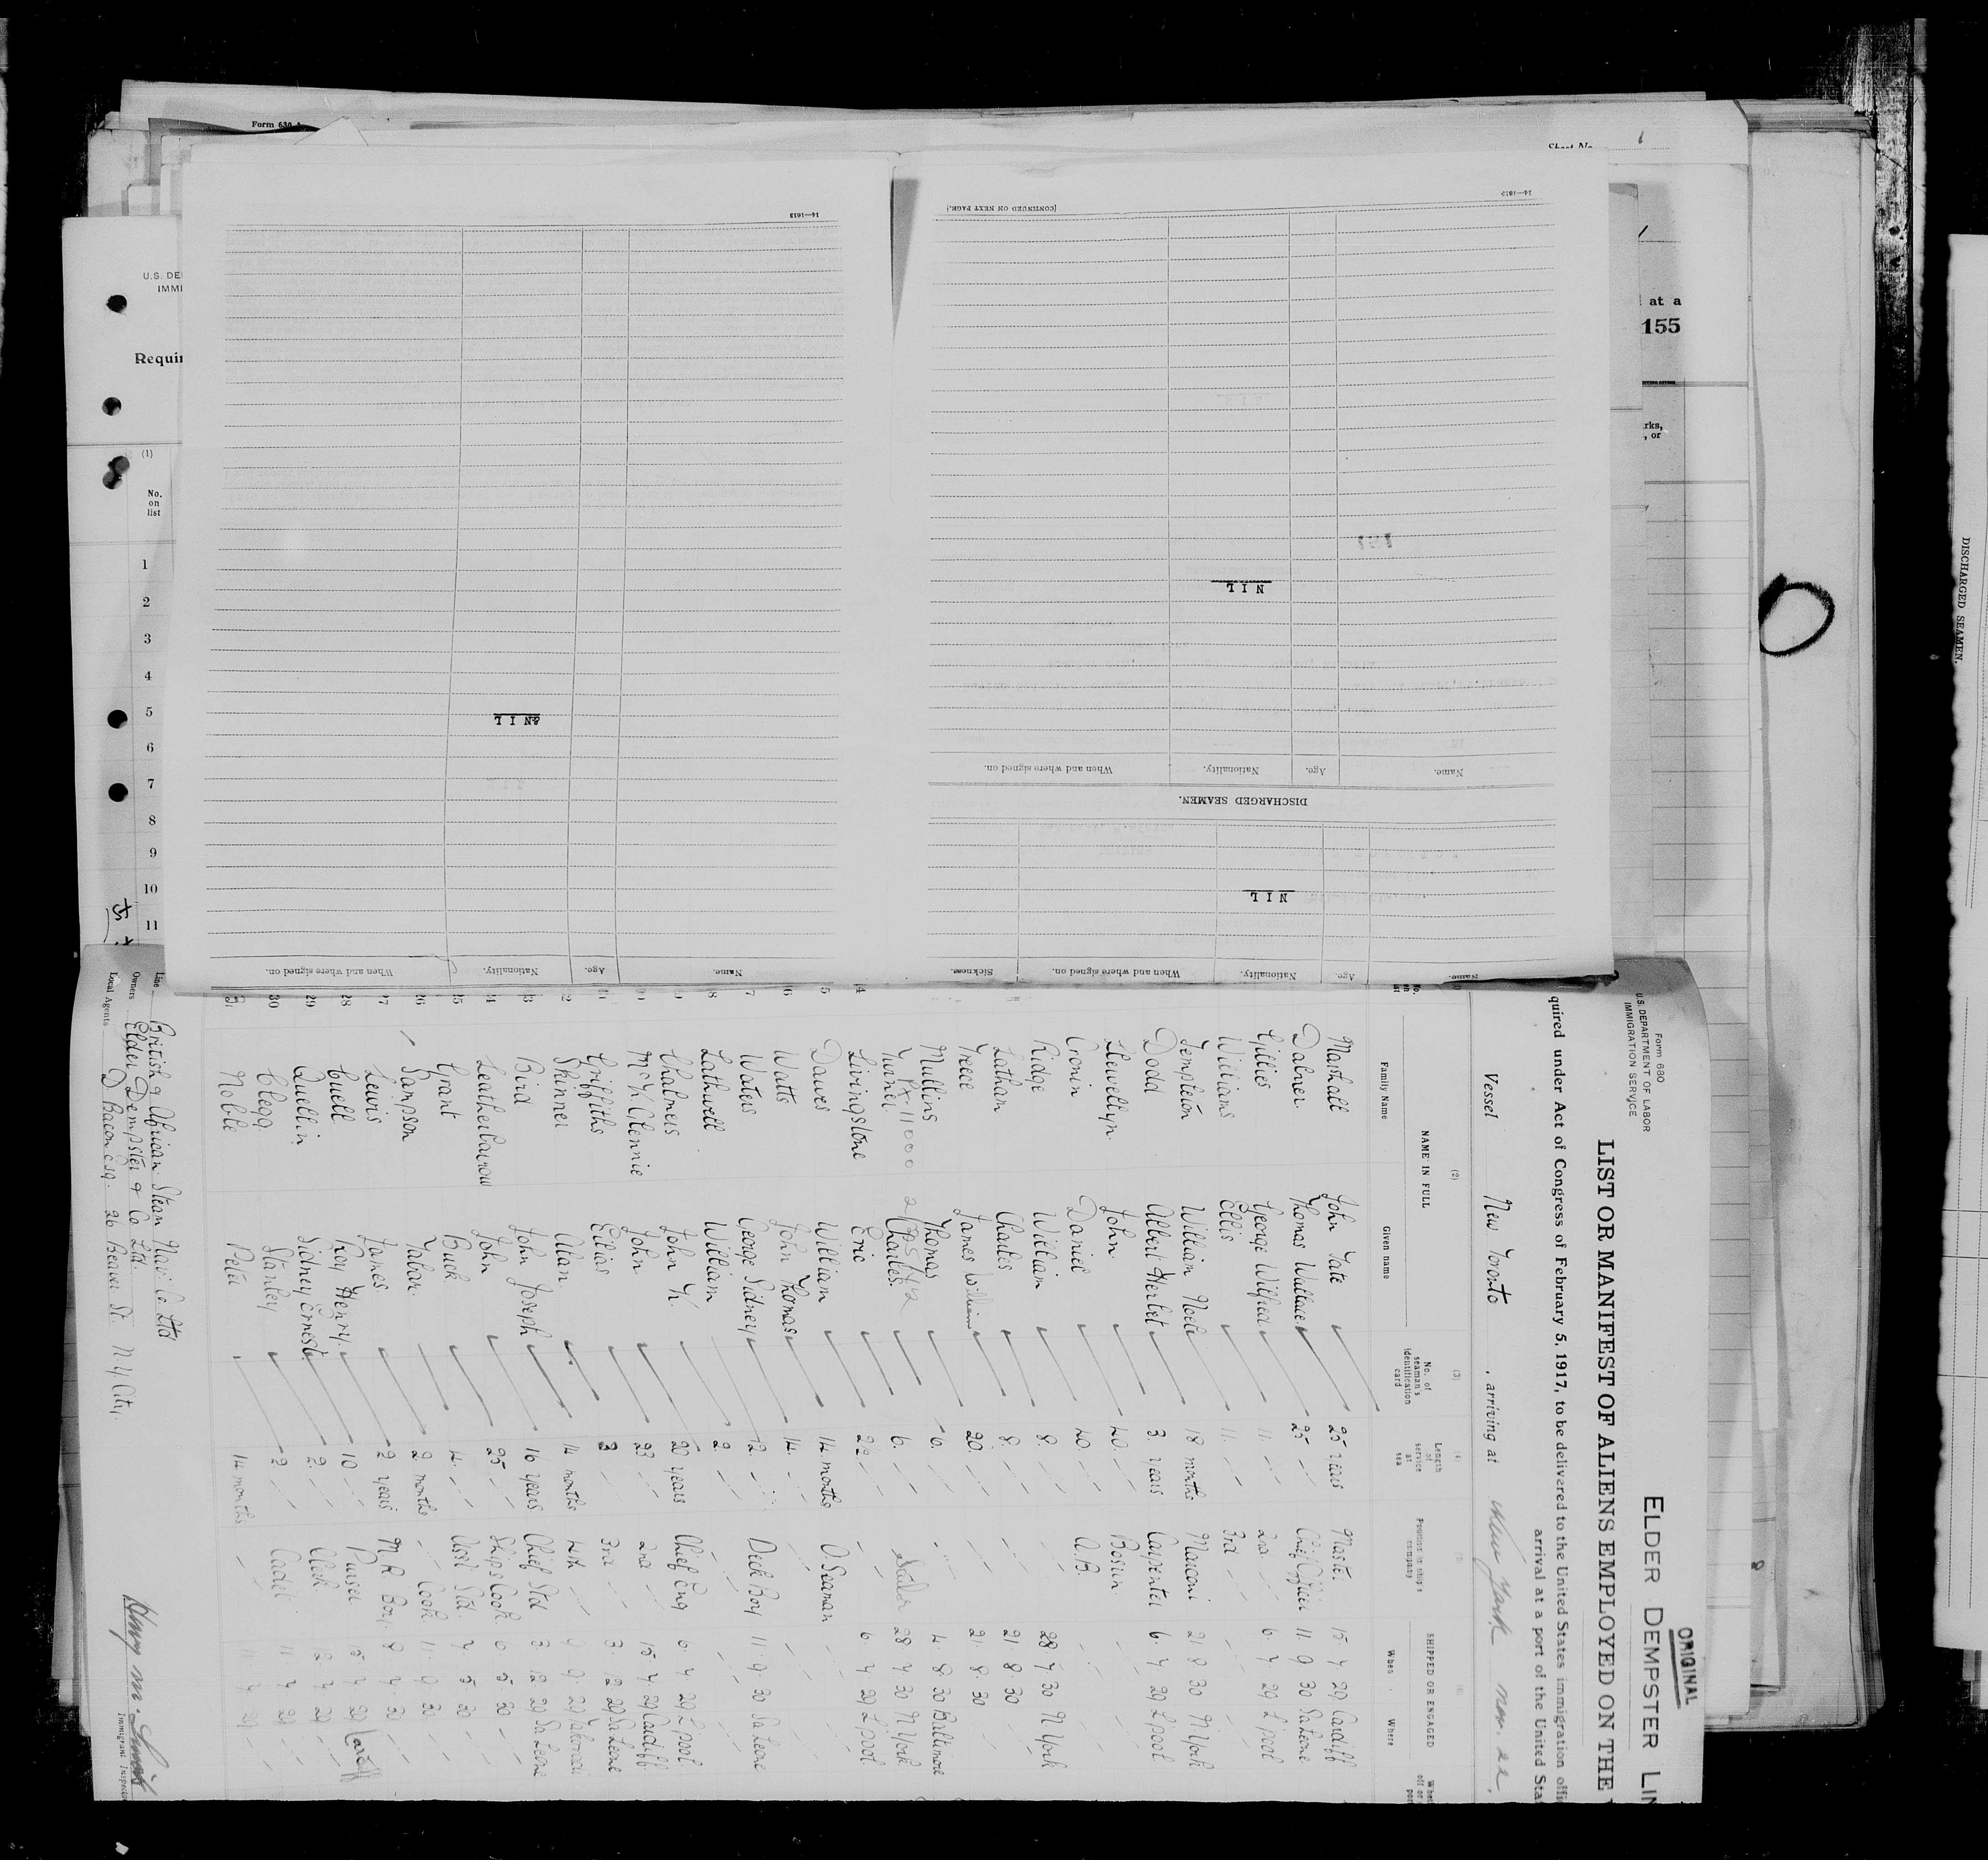 Form 630 A
Sheet No.
U.S. DE
IMMI
Requir
(1)
No.
on
list
1
2
3
4
5
6
7
8
9
10
11
at a
155
rks,
, or
DISCHARGED SEAMEN.
Name.
Age.
Nationality.
When and where signed on.
Sickness.
NIL
DISCHARGED SEAMEN.
Name.
Age.
Nationality.
When and where signed on.
NIL
[CONTINUED ON NEXT PAGE.]
14—1613
Name.
Age.
Nationality.
When and where signed on.
NIL
14—1613
ORIGINAL
ELDER DEMPSTER LIN
Form 680
U.S. DEPARTMENT OF LABOR
IMMIGRATION SERVICE
LIST OR MANIFEST OF ALIENS EMPLOYED ON THE
quired under Act of Congress of February 5, 1917, to be delivered to the United States immigration offi
arrival at a port of the United Sta
Vessel New Toronto , arriving at New York Nov. 22,
(2) (3)
NAME IN FULL
Family Name Given name
No. of seaman's identification card
Length of service at sea
Position in ship's company
SHIPPED OR ENGAGED
When Where
Marshall John Tate 25 years Master 15 4 29 Cardiff
Dalner Thomas Wallace 25 Chief Officer 11 9 30 Sa Leone
Gillies George Wilfred 11 2nd 6 4 29 L'pool
Williams Ellis 11 3rd
Templeton William Noele 18 months Marconi 21 8 30 N York
Dodd Albert Herbert 3 years Carpenter 6 4 29 L'pool
Llewellyn John 40 Bosun
Cronin Daniel 40 A.B.
Ridge William 8 28 7 30 N York
Latham Charles 8 21 8 30
Treece James William 20 21 8 30
Mullins Thomas 6 4 8 30 Baltimore
Turner Charles 6 Sailor 28 7 30 N York
Livingstone Eric 2½ 6 4 29 L'pool
Dawes William 14 months O Seaman
Watts John Thomas 14
Waters George Sidney 12 Deck Boy 11 9 30 Sa Leone
Lathwell William 2
Chalmers John K 20 years Chief Eng 6 4 29 L'pool
McK Clennie John 23 2nd 15 4 29 Cardiff
Griffiths Elias 3 3rd 3 12 29 Sa Leone
Skinner Alan 14 months 4th
Bird John Joseph 16 years Chief Std 3 12 29 Sa Leone
Leatherbarrow John 25 Ships Cook 6 5 30
Grant Buck 4 Asst Std 7 5 30
Sampson Tabar 2 months Cook 11 9 30
Lewis James 2 years M R Boy 8 4 30
Cuell Roy Henry 10 Purser 15 4 29 Cardiff
Quellin Sidney Ernest 2 Clerk 12 4 29
Clegg Stanley 2 Cadet 11 4 29
Noble Peter 14 months 11 4 29
Line British & African Steam Navi Co Ltd
Owners Elder Dempster & Co Ltd.
Local Agents D Bacon Esq. 26 Beaver St. N.Y. City.
Immigrant Inspector